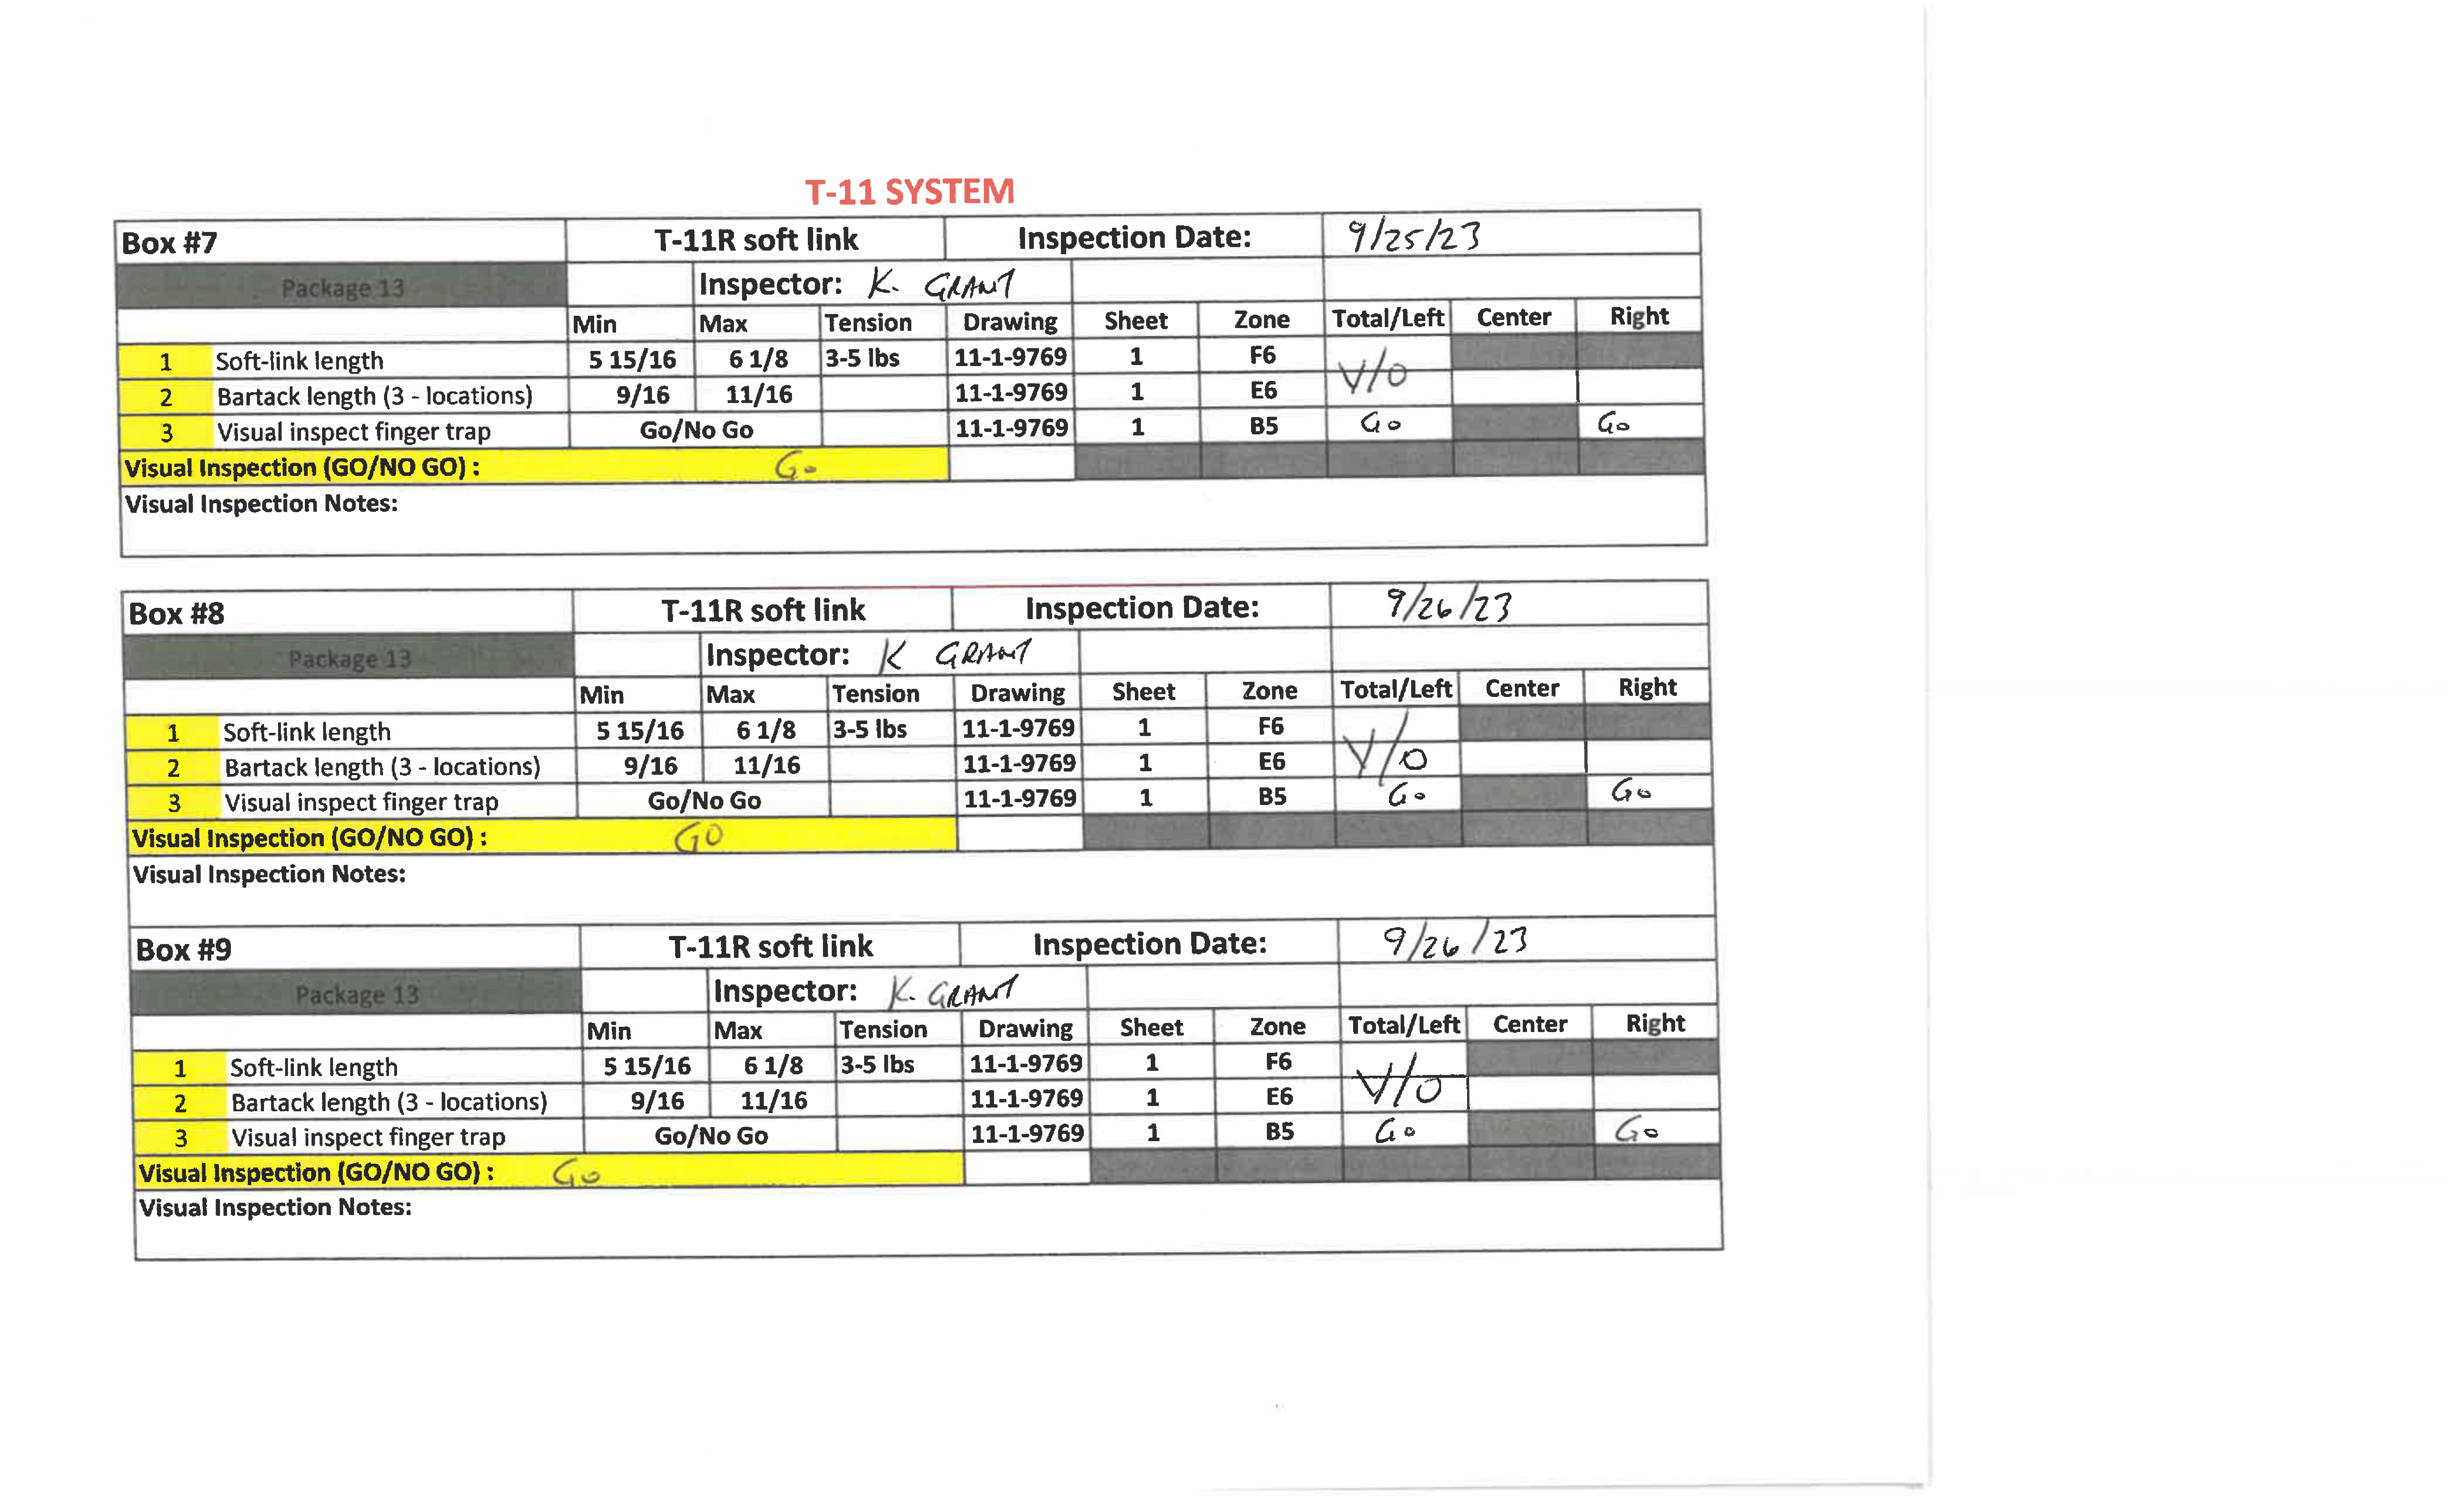 T-11 SYSTEM
Box #7 T-11R soft link Inspection Date: 9/25/23
Package 13 Inspector: K. GRANT
Min Max Tension Drawing Sheet Zone Total/Left Center Right
1 Soft-link length 5 15/16 6 1/8 3-5 lbs 11-1-9769 1 F6
V/O
2 Bartack length (3 - locations) 9/16 11/16 11-1-9769 1 E6
3 Visual inspect finger trap Go/No Go 11-1-9769 1 B5 Go Go
Visual Inspection (GO/NO GO) : Go
Visual Inspection Notes:
Box #8 T-11R soft link Inspection Date: 9/26/23
Package 13 Inspector: K GRANT
Min Max Tension Drawing Sheet Zone Total/Left Center Right
1 Soft-link length 5 15/16 6 1/8 3-5 lbs 11-1-9769 1 F6
V/O
2 Bartack length (3 - locations) 9/16 11/16 11-1-9769 1 E6
3 Visual inspect finger trap Go/No Go 11-1-9769 1 B5 Go Go
Visual Inspection (GO/NO GO) : GO
Visual Inspection Notes:
Box #9 T-11R soft link Inspection Date: 9/26/23
Package 13 Inspector: K. GRANT
Min Max Tension Drawing Sheet Zone Total/Left Center Right
1 Soft-link length 5 15/16 6 1/8 3-5 lbs 11-1-9769 1 F6
V/O
2 Bartack length (3 - locations) 9/16 11/16 11-1-9769 1 E6
3 Visual inspect finger trap Go/No Go 11-1-9769 1 B5 Go Go
Visual Inspection (GO/NO GO) : Go
Visual Inspection Notes: